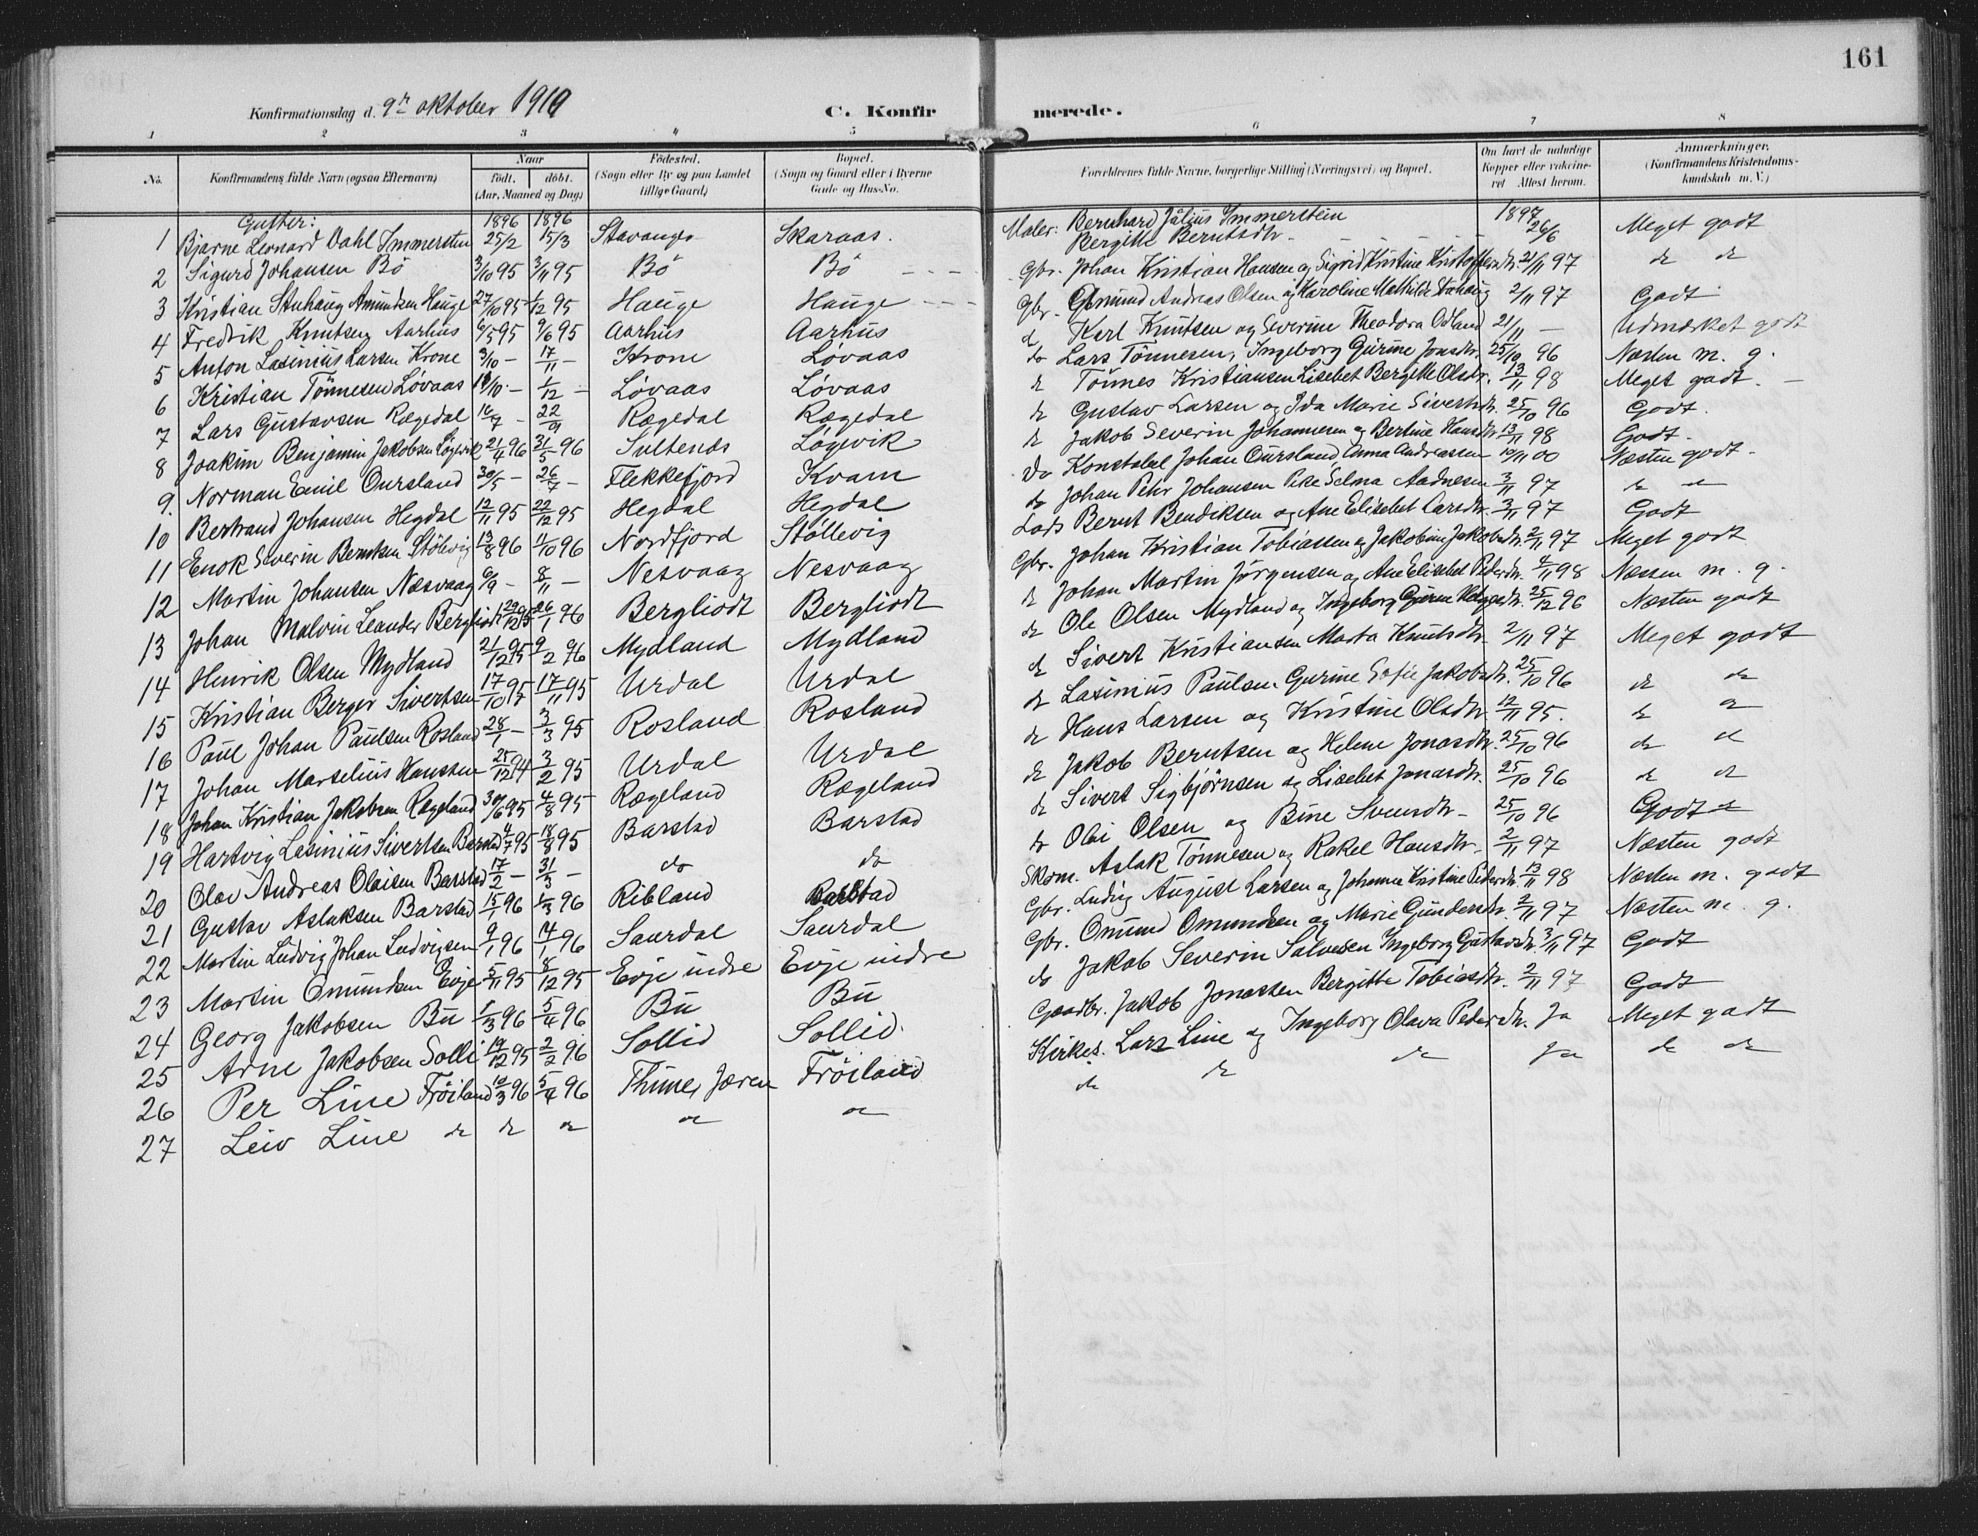 161
Konfirmationsdag d. 9de oktober 1910 C. Konfirmerede.
1 2 3 4 5 6 7 8
No. Konfirmandens fulde Navn (ogsaa Efternavn) Naar født. døbt. (Aar, Maaned og Dag) Fødested. (Sogn eller By og paa Landet tillige Gaard) Bopæl. (Sogn og Gaard eller i Byerne Gade og Hus-No. Forældrenes fulde Navne, borgerlige Stilling (Næringsvei) og Bopæl. Om havt de naturlige Kopper eller vaccineret Attest herom. Anmerkninger. (Konfirmandens Kristendomskundskab m. V.)
Gutter: 1896 1896
1 Bjarne Leonard Dahl Immerstein 25/2 15/3 Stavanger Skaraas. Maler: Bernhard Julius Immerstein Bergitte Berntsdtr. 1897 26/6 Meget godt
2 Sigurd Johansen Bö 3/10 95 3/11 95 Bö Bö Gbr. Johan Kristian Hansen og Sigrid Kristine Kristoffersdtr. 21/11 97 do do
3 Kristian Stuhaug Amundsen Hauge 27/10 95 1/12 95 Hauge Hauge Gbr. Andreas Olsen og Karoline Mathilde Stuhaug 2/11 97 Godt
4 Fredrik Knutsen Aarhus 6/5 95 9/6 95 Aarhus Aarhus d Karl Knutsen og Severine Theodora Odland 21/11 — Udmærket godt
5 Anton Lasinius Larsen Krone 3/10 — 17/11 — Krone Løvaas do Lars Tönnesen, Ingeborg Gurine Jonasdtr. 25/10 96 Næsten m. g.
6 Kristian Tönnesen Løvaas /10 — 1/12 — Løvaas Løvaas do Tönnes Kristiansen Lisebet Bergitte Olsdtr. 13/11 98 Meget godt. —
7 Lars Gustavsen Rægedal 16/7 — 22/9 Rægedal Rægedal do Gustav Larsen og Ida Marie Sivertsdtr. 25/10 96 Godt.
8 Joakim Benjamin Jakobsen Løgevik 21/4 96 31/5 96 Sultenes Løgevik do Jakob Severin Johannesen og Bertine Hansdtr 13/11 98 Godt.
9. Norman Emil Oursland 30/5 — 26/7 — Flekkefjord Kvam Do Konstabel Johan Oursland Emma Andreassen 10/11 00 Næsten godt.
10 Bertrand Johansen Hegdal 12/11 95 22/12 95 Hegdal Hegdal do Johan Pehr Johansen Selma Aadnesen 3/11 97 do do
11 Enok Severin Berntsen Stölevig 13/8 96 11/10 96 Nordfjord Stöllevig Lods Bernt Bendiksen og Ane Elisebet Larsdtr. 3/11 97 Godt
12 Martin Johansen Næsvaag 6/9 — 8/11 — Nesvaag Nesvaag Gbr. Johan Kristian Tobiassen og Jakobine Jakobsdtr. 2/11 97 Meget godt
13 Johan Malvin Leander Bergliodt 29/12 95 26/1 96 Bergliodt Bergliodt do Johan Martin Jörgensen og Ane Elisebet Pedersdtr. 4/11 98 Næsten m. g.
14 Henrik Olsen Mydland 21/12 95 9/2 96 Mydland Mydland do Ole Olsen Mydland og Ingeborg Gurine Helgesdtr. 25/12 96 Næsten godt
15 Kristian Berger Sivertsen 17/10 95 17/11 95 Urdal Urdal do Sivert Kristiansen Marta Knutsdtr. 2/11 97 Meget godt
16 Paul Johan Paulsen Rosland 28/1 — 3/3 95 Rosland Rosland do Lasinius Paulsen Gurine Sofie Jakobsdtr. 25/10 96 do do
17 Johan Marselius Hanssen 25/12 94 3/2 95 Urdal Urdal do Hans Larsen og Kristine Olsdtr 12/11 95. do do
18 Johan Kristian Jakobsen Rægeland 30/6 95 4/8 95 Rægeland Rægeland do Jakob Berntsen og Helene Jonasdtr. 25/10 96 do do
19 Hartvig Lasinius Sivertsen Barstad 4/7 95 18/8 95 Barstad Barstad do Sivert Sigbjörnsen og Lisebet Jonasdtr. 25/10 96 do do
20 Olav Andreas Olaisen Barstad 17/2 — 31/3 — do do do Olai Olsen og Bine Svensdtr 25/10 96 Godt
21 Gustav Aslaksen Barstad 15/1 96 1/3 96 Ribland Barstad Skom. Aslak Tönnesen og Rakel Hansdtr. 2/11 97 Næsten godt
22 Martin Ludvig Johan Ludvigsen 9/1 96 /1 96 Saurdal Saurdal Gbr. Ludvig August Larsen og Johanne Kristine Pedersdtr. 13/11 98 Næsten m. godt
23 Martin Omundsen Evje 5/11 95 8/12 95 Evje indre Evje indre Gbr. Omund Omundsen og Marie Gundersdtr. 2/11 97 Næsten m. g.
24 Georg Jakobsen Bu 1/3 96 5/4 96 Bu Bu do Jakob Severin Salvesen Ingeborg Gustavsdtr. 3/11 97 Godt
25 Arne Jakobsen Solli 19/12 95 2/2 96 Sollid Sollid. Gaardbr. Jakob Jonassen Bergitte Tobiasdtr. 2/11 97 Godt
26 Per Line Fröiland 10/3 96 5/4 96 Thime, Jæren Fröiland Kirkes. Lars Line og Ingeborg Olava Pedersdtr. Ja Meget godt
27 Leiv Line do do do do do do do do Ja do do